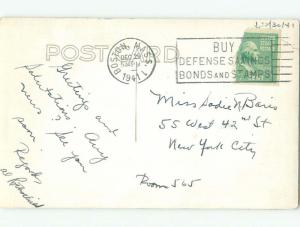 POSTCARD
BOSTON, MASS. 1
DEC 29
1941
BUY
DEFENSE SAVINGS
BONDS AND STAMPS
Greetings and
Salutations! Any
news? See you
soon.
Regards,
Al
Miss Sadie N Baris
55 West 42nd St
New York City
Room 565